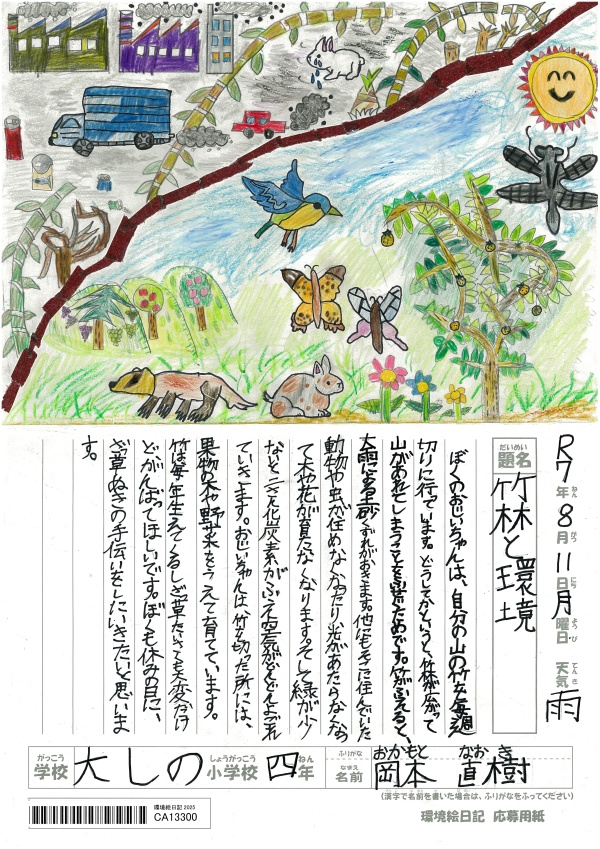 R7年8月11日月曜日 天気 雨
ねん がつ にち ようび てんき
だいめい
題名 竹林と環境
ぼくのおじいちゃんは、自分の山の竹を毎週
切りに行っています。どうしてかというと、竹林が広がって
山があれてしまうことをふせぐためです。竹がふえると、
大雨による土砂くずれがおきます。他にもそこに住んでいた
動物や虫が住めなくなったり、光があたらなくなっ
て木や花が育たなくなります。そして緑が少
ないと二さん化炭素がふえ空気がどんどんよごれ
ていきます。おじいちゃんは、竹を切った所には、
果物の木や野菜をうえて育てています。
竹は毎年生えてくるしざっ草だらけでも大変だけ
どがんばってほしいです。ぼくも休みの日に、
ざっ草ぬきの手伝いをしたいきたいと思いま
す。
がっこう しょうがっこう ねん ふりがな おかもと なおき
学校 大しの小学校 四年 なまえ 名前 岡本 直樹
(漢字で名前を書いた場合は、ふりがなをふってください)
環境絵日記 2025
CA13300
環境絵日記 応募用紙